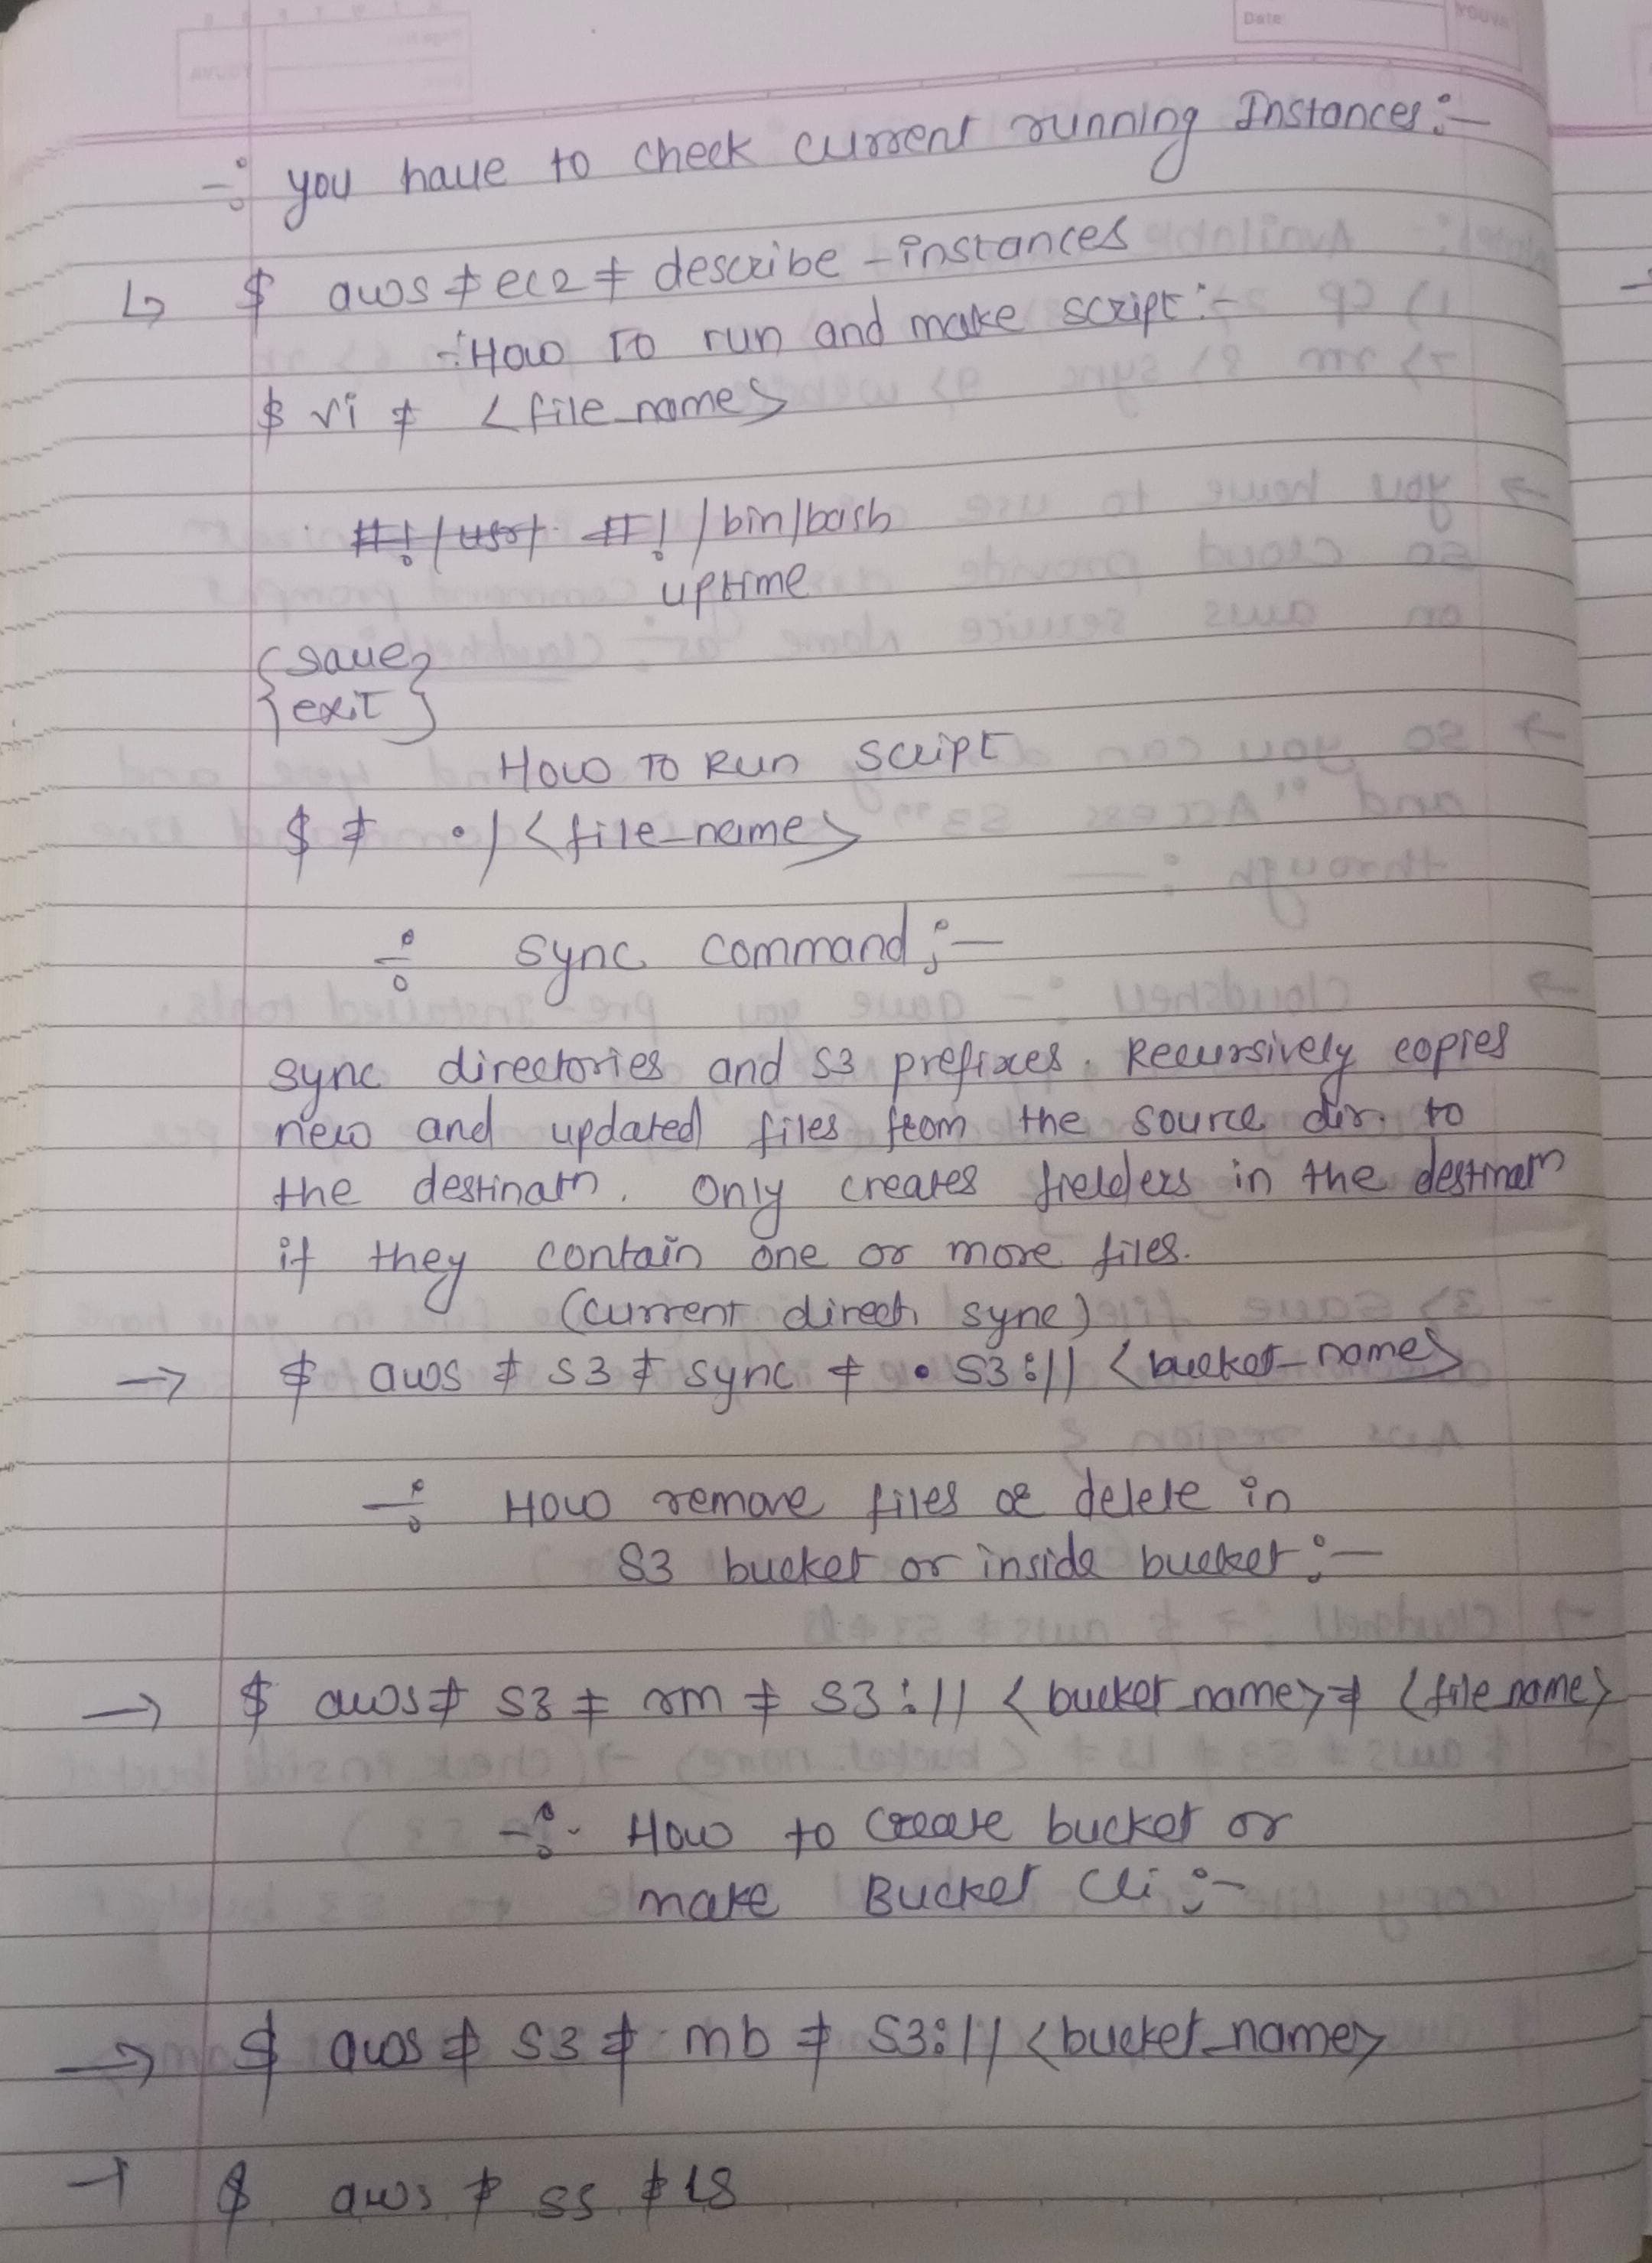 Date
YOUVA
÷ you have to check current running Instances:-
↳ $ aws ≠ ec2 ≠ describe - instances
÷ How To run and make script:-
$ vi ≠ <file_name>
#!/usr #!/bin/bash
uptime
{save}
{exit}
How To Run script
$ ≠ ./<file_name>
÷ sync command;-
sync directories and S3 prefixes. Recursively copies
new and updated files from the source dir. to
the destinatn. Only creates fielders in the destinatn
if they contain one or more files.
(current direct sync)
→ $ aws ≠ S3 ≠ sync ≠ . S3:// <bucket_name>
÷ How remove files or delete in
S3 bucket or inside bucket:-
→ $ aws ≠ S3 ≠ rm ≠ S3:// <bucket_name> ≠ <file name>
÷ How to create bucket or
make Bucket Cli :-
→ $ aws ≠ S3 ≠ mb ≠ S3:// <bucket_name>
→ $ aws ≠ S3 ≠ ls